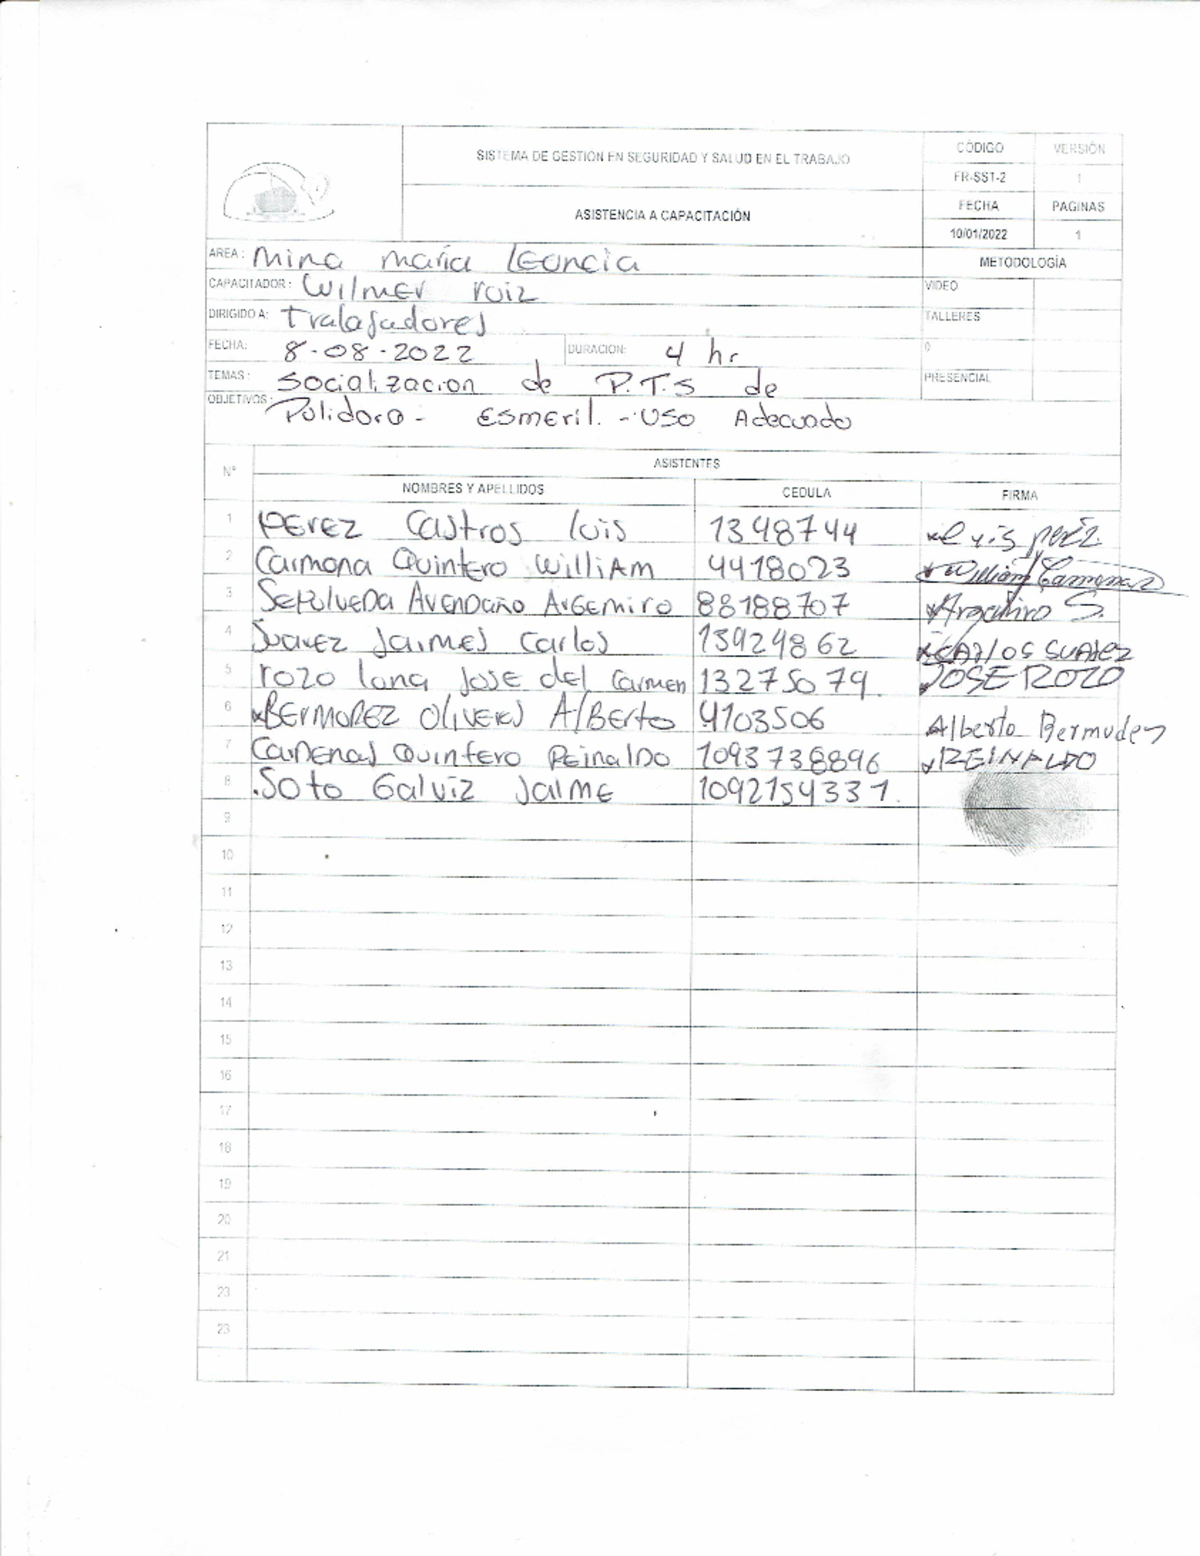 SISTEMA DE GESTION EN SEGURIDAD Y SALUD EN EL TRABAJO
CÓDIGO VERSIÓN
FR-SST-2 1
ASISTENCIA A CAPACITACIÓN
FECHA PAGINAS
10/01/2022 1
AREA: Mina María Leoncia
METODOLOGÍA
CAPACITADOR: Wilmer roiz
VIDEO
DIRIGIDO A: Trabajadores
TALLERES
FECHA: 8-08-2022 DURACION: 4 hr
0
TEMAS: Socialización de P.T.S de
PRESENCIAL
OBJETIVOS: Pulidora - Esmeril. - USO Adecuado
N° ASISTENTES
NOMBRES Y APELLIDOS CEDULA FIRMA
1 PEREZ Castros luis 1348744 Luis perez.
2 Carmona Quintero WilliAm 4418023 William Carmona
3 SEPULVEDA AVENDAÑO ArGEMiro 88188707 Argemiro S.
4 Suarez Jaimes Carlos 13924862 CARlos SUAREZ
5 rozo lana Jose del Carmen 13275079. JOSE ROZO
6 BERMUDEZ OliVEros AlBErto 4103506 Alberto Bermudez
7 CarDEnas Quintero REinalDo 1093738896 REINALDO
8 .Soto Galviz JaimE 1092154331.
9
10
11
12
13
14
15
16
17
18
19
20
21
23
23